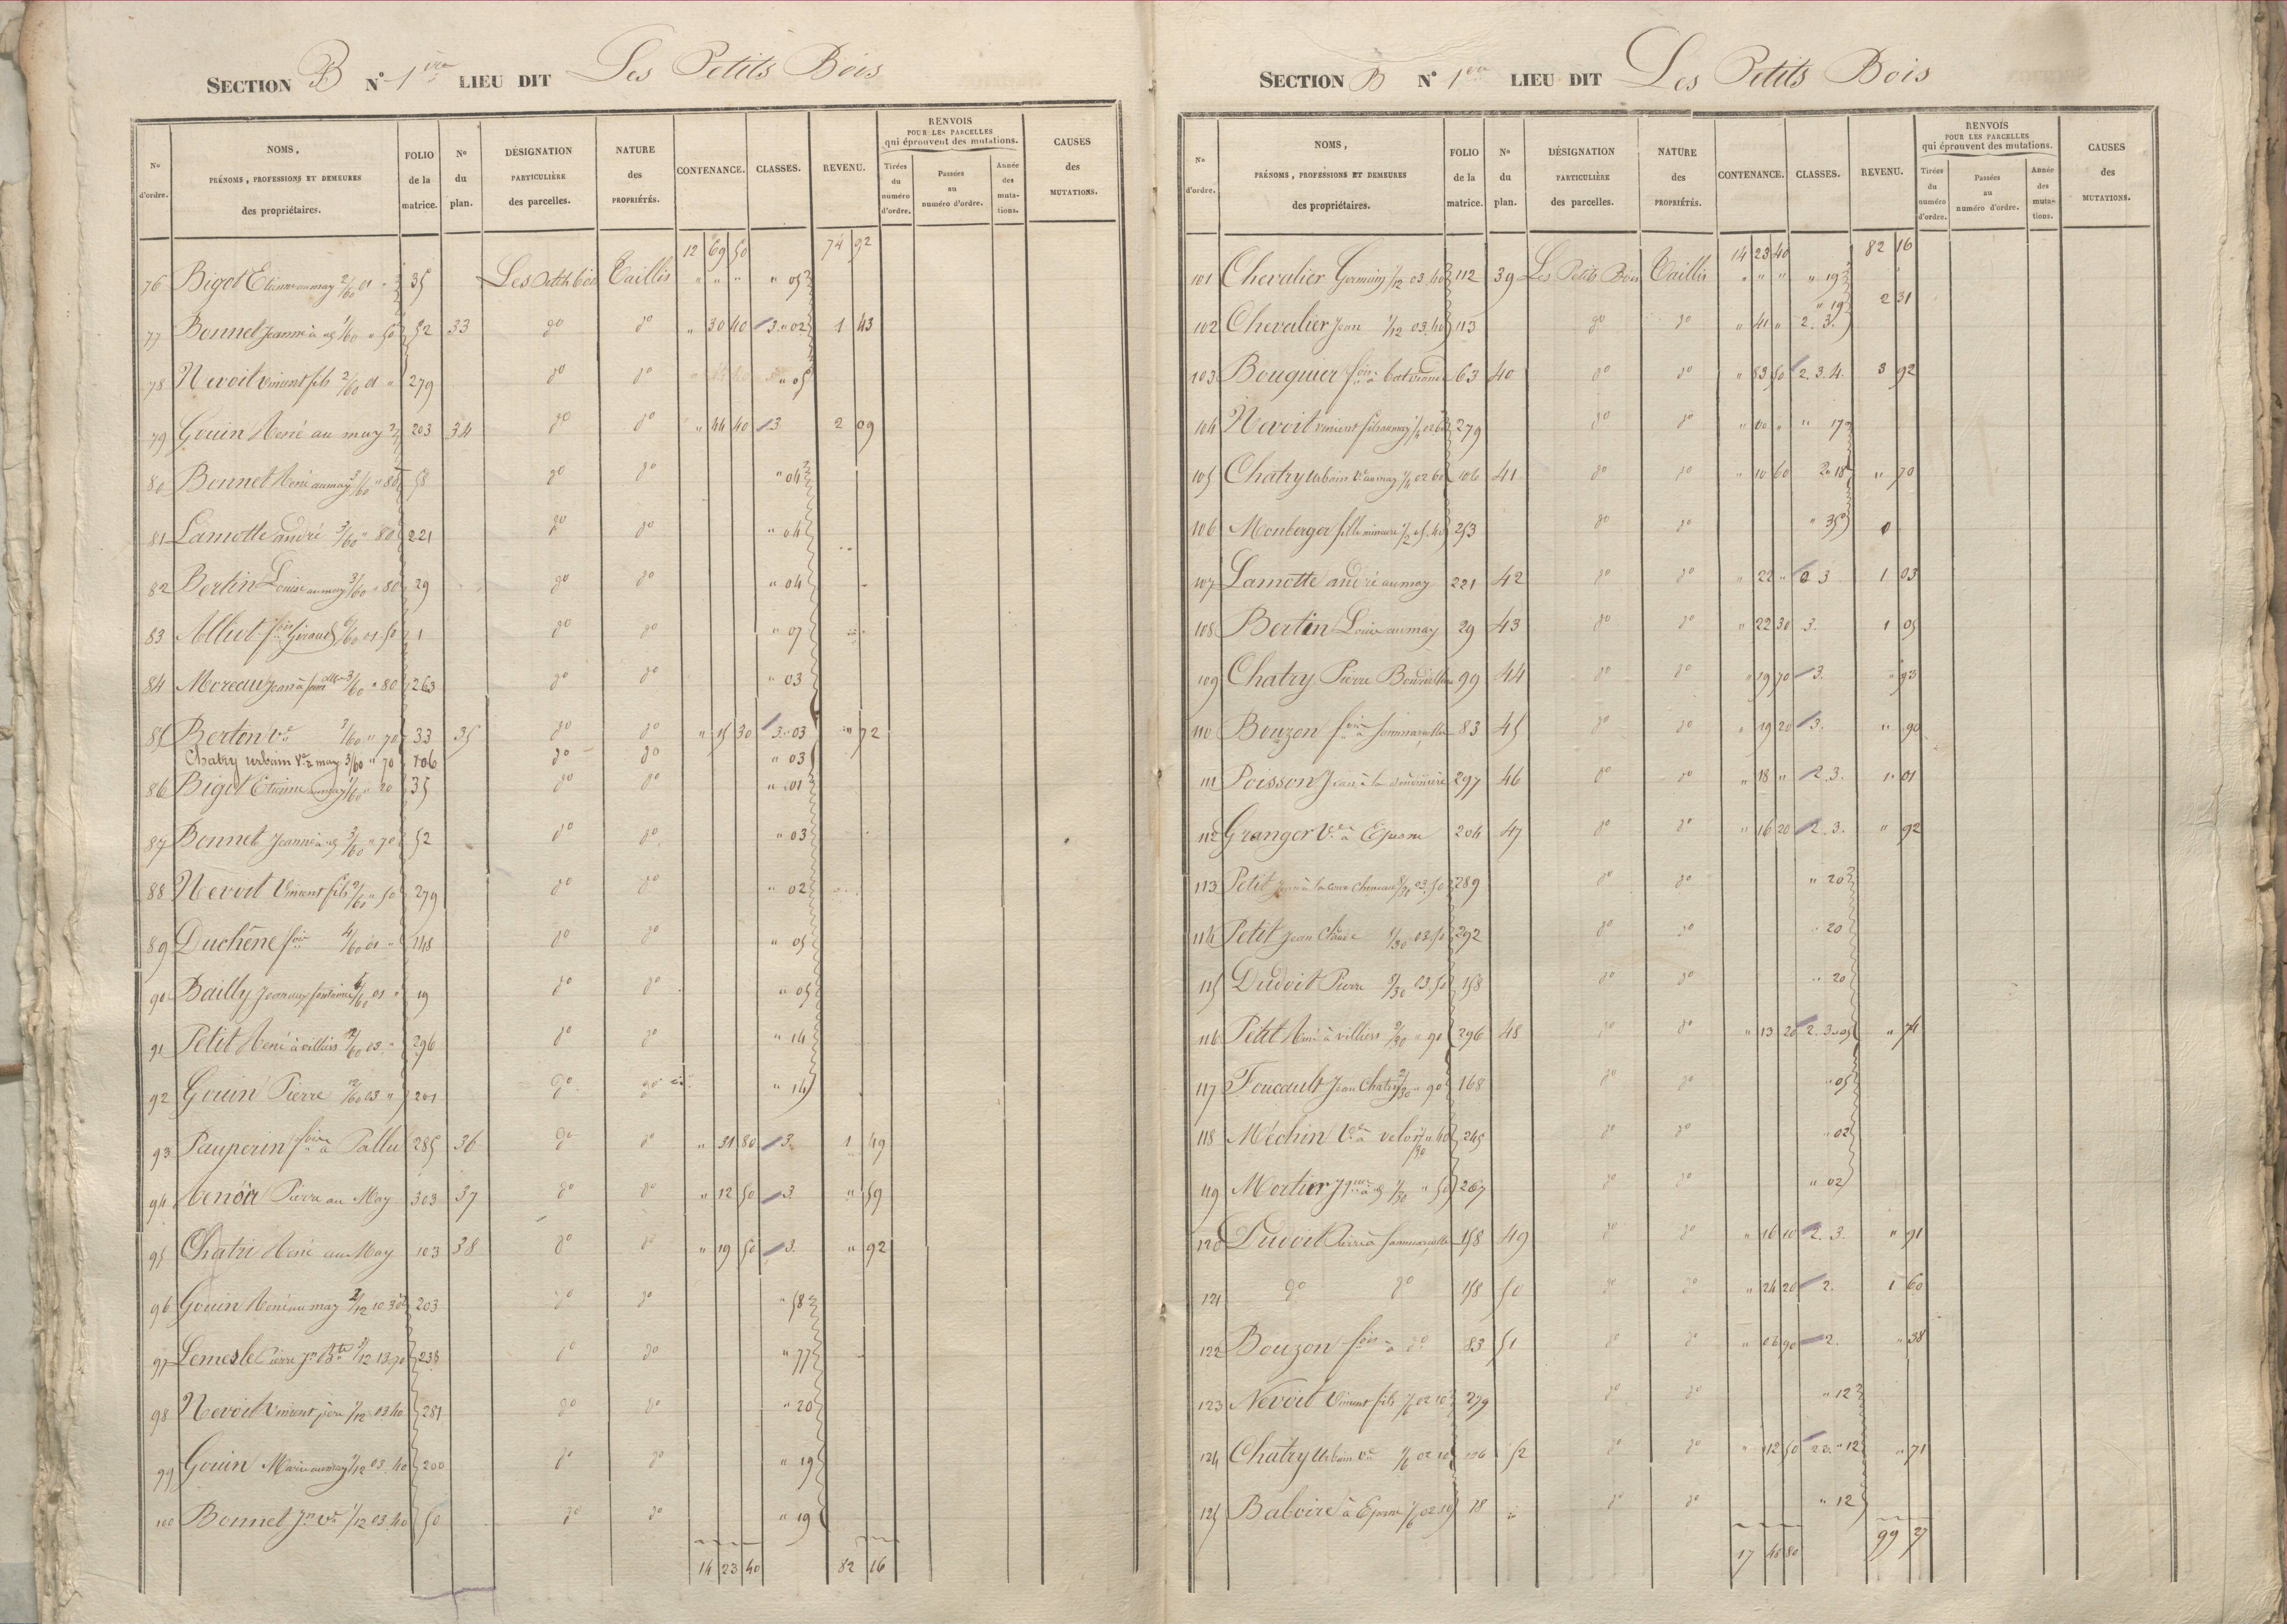 SECTION B N° 1ère LIEU DIT Les Petits Bois
N° d'ordre. NOMS, PRÉNOMS, PROFESSIONS ET DEMEURES des propriétaires. FOLIO de la matrice. N° du plan. DÉSIGNATION PARTICULIÈRE des parcelles. NATURE des PROPRIÉTÉS. CONTENANCE. CLASSES. REVENU. RENVOIS POUR LES PARCELLES qui éprouvent des mutations. Tirées du numéro d'ordre. Passées au numéro d'ordre. Année des mutations. CAUSES des MUTATIONS.
12 69 50 74 92
76 Bigot Etienne au may 2/60 01 " 35 Les Petits bois Taillis " " " " 05
77 Bonnet Jeanne à 1/60 " 50 52 33 do do " 30 40 3. " 02 1 43
78 Nevoit Vincent fils 2/60 01 " 279 do do " 05
79 Gouin René au may 203 34 do do " 44 40 3 2 09
80 Bonnet René au may 3/60 " 80 58 do do " 04
81 Lamotte andré 3/60 " 80 221 do do " 04
82 Bertin Louise au may 3/60 " 80 29 do do " 04
83 Allut foin Giraud 6/60 01 50 1 do do " 07
84 Moreau Jean à 3/60 " 80 263 do do " 03
85 Berton Ve 3/60 " 70 33 35 do do " 15 30 3. " 03 " 72
Chatry urbain Ve a may 3/60 " 70 106 do do " 03
86 Bigot Etienne au may 1/60 " 20 35 do do " 01
87 Bonnet Jeanne à 3/60 " 70 52 do do " 03
88 Nevoit Vincent fils 2/60 " 50 279 do do " 02
89 Duchêne 4/60 01 " 148 do do " 05
90 Bailly Jean aux fontaines 4/60 01 " 19 do do " 05
91 Petit René à villiers 12/60 03 " 296 do do " 14
92 Gouin Pierre 12/60 03 " 201 do do " 14
93 Pauperin à Pallu 285 36 do do " 31 80 3. 1 49
94 Renoir Pierre au May 303 37 do do " 12 50 3. " 59
95 Chatri René au May 103 38 do do " 19 50 3. " 92
96 Gouin René au may 3/12 10 30 203 do do " 58
97 Lemesle Pierre Jn Bte 12 13.70 238 do do " 77
98 Nevoit Vincent père 1/12 03 40 281 do do " 20
99 Gouin Marie au may 1/12 03. 40 200 do do " 19
100 Bonnet Jn Ve 1/12 03 40 50 do do " 19
14 23 40 82 16
SECTION B N° 1ère LIEU DIT Les Petits Bois
N° d'ordre. NOMS, PRÉNOMS, PROFESSIONS ET DEMEURES des propriétaires. FOLIO de la matrice. N° du plan. DÉSIGNATION PARTICULIÈRE des parcelles. NATURE des PROPRIÉTÉS. CONTENANCE. CLASSES. REVENU. RENVOIS POUR LES PARCELLES qui éprouvent des mutations. Tirées du numéro d'ordre. Passées au numéro d'ordre. Année des mutations. CAUSES des MUTATIONS.
14 23 40 82 16
101 Chevalier Germain 1/12 03 40 112 39 Les Petits Bois Taillis " " " " 19
" 19 2 31
102 Chevalier Jean 1/12 03.40 113 do do " 41 " 2. 3.
103 Bouquier à 63 40 do do " 83 50 2. 3. 4. 3 92
104 Nevoit vincent fils au may 1/4 02 60 279 do do " 00 " " 17
105 Chatry Urbain Ve au may 1/4 02 60 106 41 do do " 10 60 2 " 18 " 70
106 Monberger fille mineure 1/2 05 40 253 do do " 35 0
107 Lamotte andré au may 221 42 do do " 22 " 2 3 1 03
108 Bertin Louise au may 29 43 do do " 22 30 3. 1 05
109 Chatry Pierre 99 44 do do " 19 70 3. " 93
110 Bouzon à 83 45 do do " 19 20 3. " 90
111 Poisson Jean à la 297 46 do do " 18 " 2. 3. 1 01
112 Granger Ve à 204 47 do do " 16 20 2. 3. " 92
113 Petit à la cour 03.50 289 do do " 20
114 Petit Jean Claude 8/30 03.50 292 do do " 20
115 Dudoit Pierre 8/30 03.50 158 do do " 20
116 Petit René à villiers 2/30 " 90 296 48 do do " 13 20 2. 3 " 05 " 74
117 Foucault Jean Chatry 2/30 " 90 168 do do " 05
118 Méchin Ve à 1/30 " 40 245 do do " 02
119 Mortier 1/30 " 50 267 do do " 02
120 Dudoit Pierre à 158 49 do do " 16 10 2. 3. " 91
121 do do 158 50 do do " 24 20 2. 1 60
122 Bouzon à do 83 51 do do " 06 90 2. " 38
123 Nevoit Vincent fils 1/6 02 10 279 do do " 12
124 Chatry Urbain Ve 1/6 02 10 106 52 do do " 12 50 2 3. " 12 " 71
125 Baboire à 1/6 02 10 18 " do do " 12
17 48 80 99 27